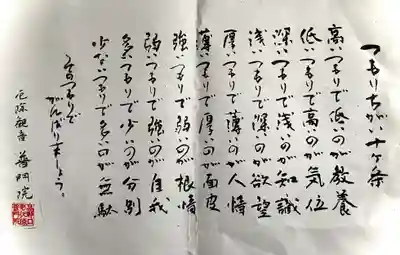 つもりちがい十ヶ条
高いつもりで低いのが教養
低いつもりで高いのが気位
深いつもりで浅いのが知識
浅いつもりで深いのが欲望
厚いつもりで薄いのが人情
薄いつもりで厚いのが面皮
強いつもりで弱いのが根情
弱いつもりで強いのが自我
多いつもりで少いのが分別
少ないつもりで多いのが無駄
そのつもりで
がんばりましょう。
厄除観音 普門院